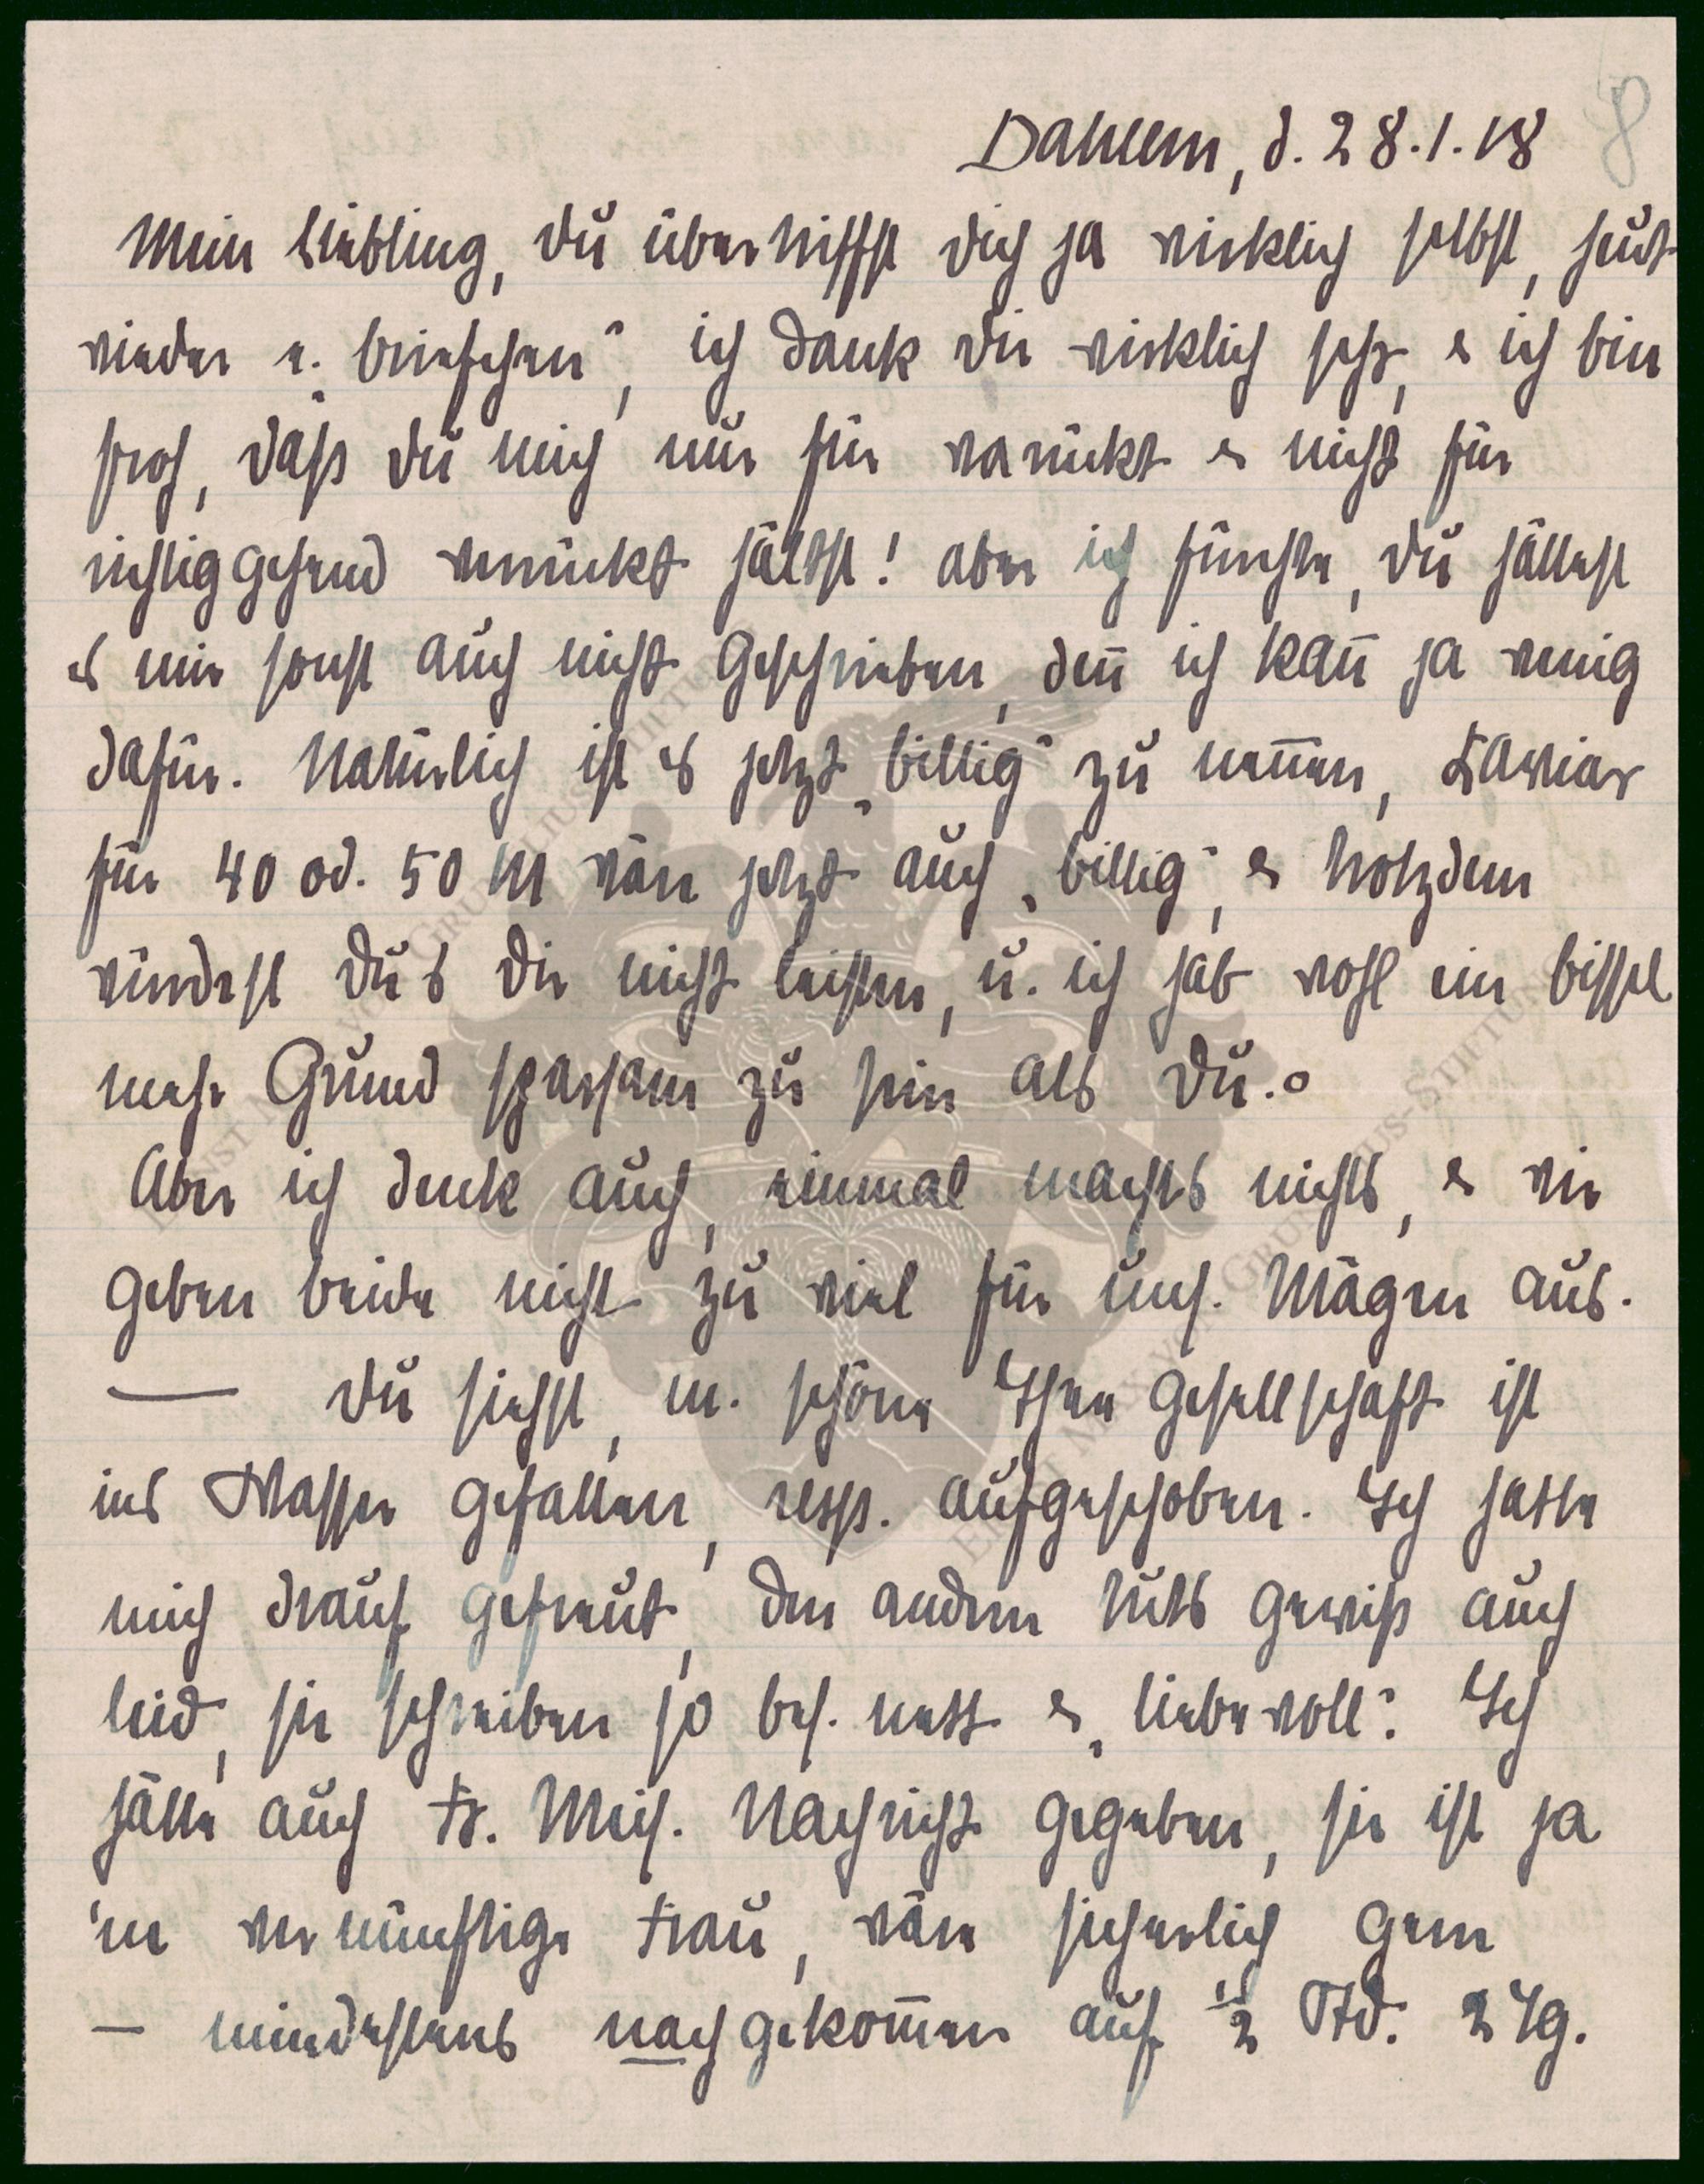 8
Dahlem, d. 28.1.18
Mein Liebling, du übertriffst dich ja wirklich selbst, heut
wieder e. „Briefchen“, ich dank dir wirklich sehr, & ich bin
froh, daß du mich nur für varückt & nicht für
richtiggehend verrückt hältst! Aber ich fürchte, du hättest
es mir sonst auch nicht geschrieben, den̄ ich kan̄ ja wenig
dafür. Natürlich ist es jetzt „billig“ zu nen̄en, Kawiar
für 40 od. 50 M wär jetzt auch „billig“, & trotzdem
würdest du's dir nicht leisten, u. ich hab wohl ein bissel
mehr Grund sparsam zu sein als du.
Aber ich denk auch, einmal machts nichts, & wir
geben beide nicht zu viel für uns. Mägen aus.
— Du siehst, m. schöne Thee Gesellschaft ist
ins Wasser gefallen, resp. aufgeschoben. Ich hatte
mich drauf gefreut, den andern tuts gewiß auch
leid, sie schreiben so bes. nett & „liebevoll“. Ich
hätte auch Fr. Meis. Nachricht gegeben, sie ist ja
'ne vernünftige Frau, wäre sicherlich gern
— mindestens nachgekom̄en auf ½ Std.
ERNST MAX VON GRUNELIUS-STIFTUNG